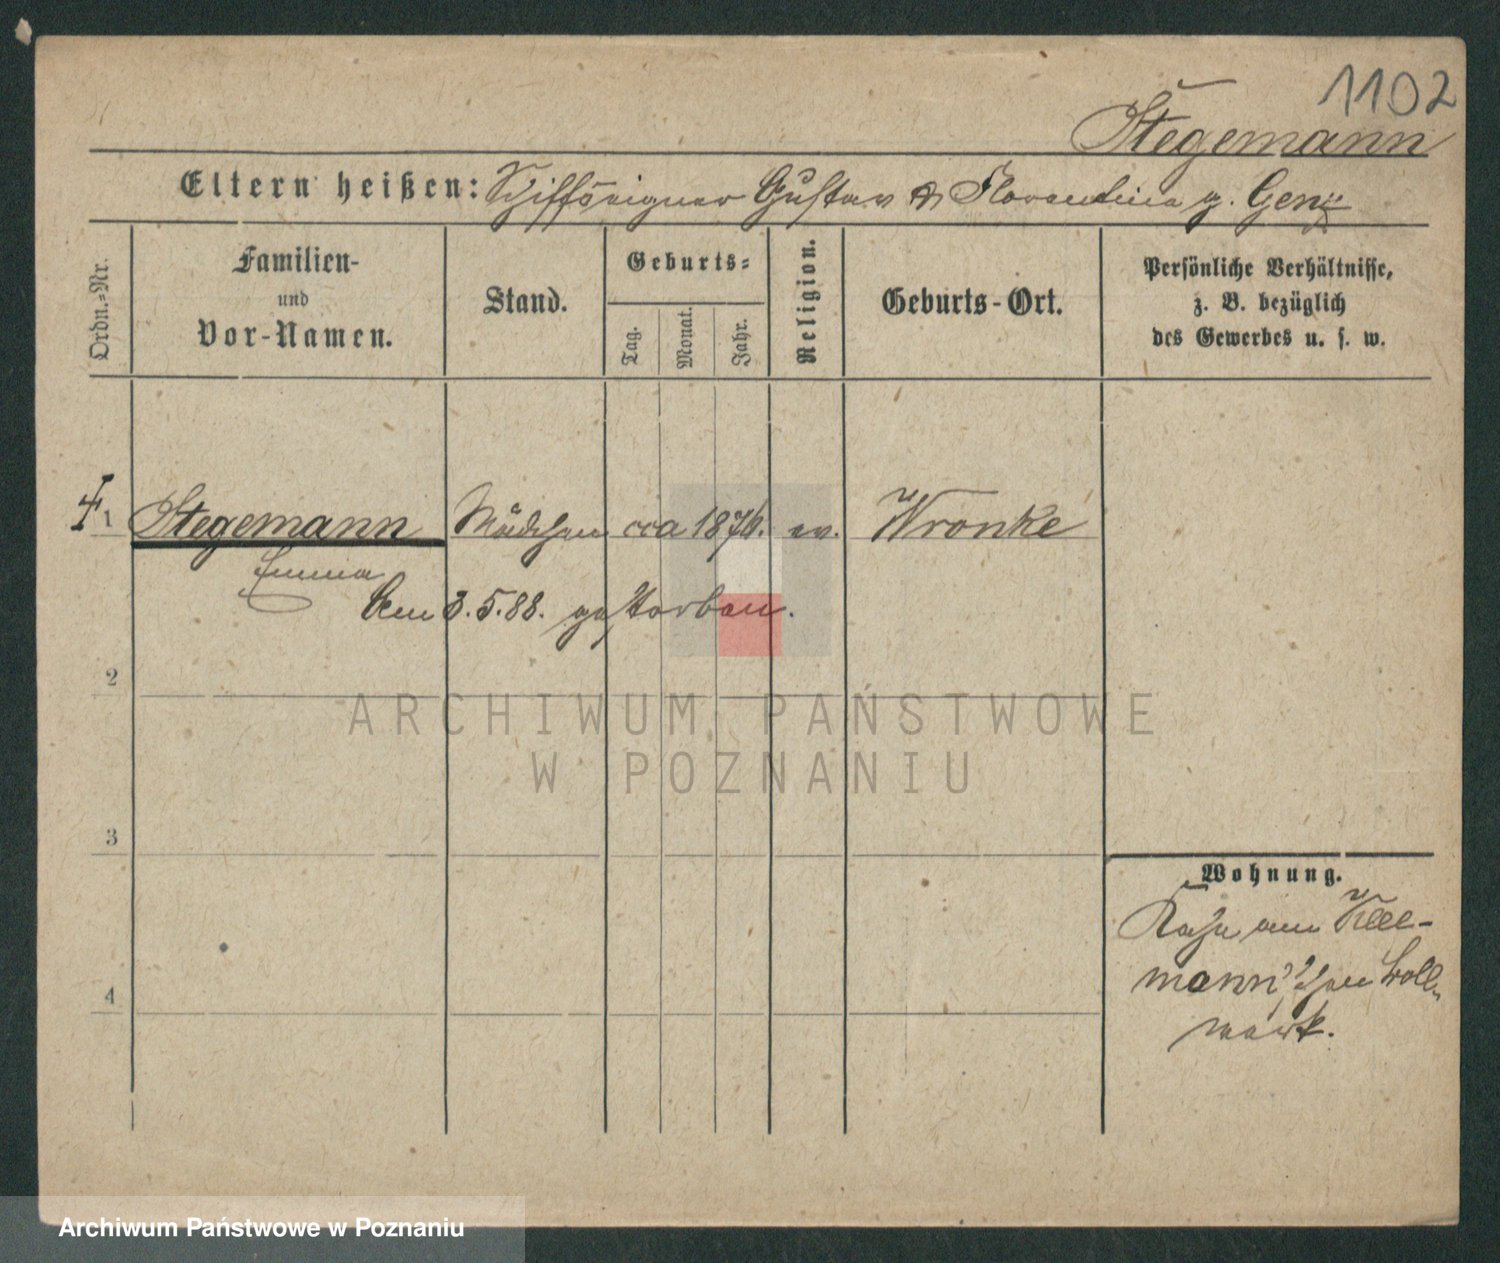 1102
Stegemann
Eltern heißen: Schiffseigner Gustav & Florentine g.
Ordn.-Nr.
Familien-
und
Vor-Namen.
Stand.
Geburts-
Tag.
Monat.
Jahr.
Religion.
Geburts-Ort.
Persönliche Verhältnisse,
z. B. bezüglich
des Gewerbes u. s. w.
1 Stegemann Mädchen cca 1876. ev. Wronke
Emma
den 3.5.88. gestorben.
2
ARCHIWUM PAŃSTWOWE
W POZNANIU
3
Wohnung.
Kahn am
mann'schen Boll-
werk.
4
Archiwum Państwowe w Poznaniu